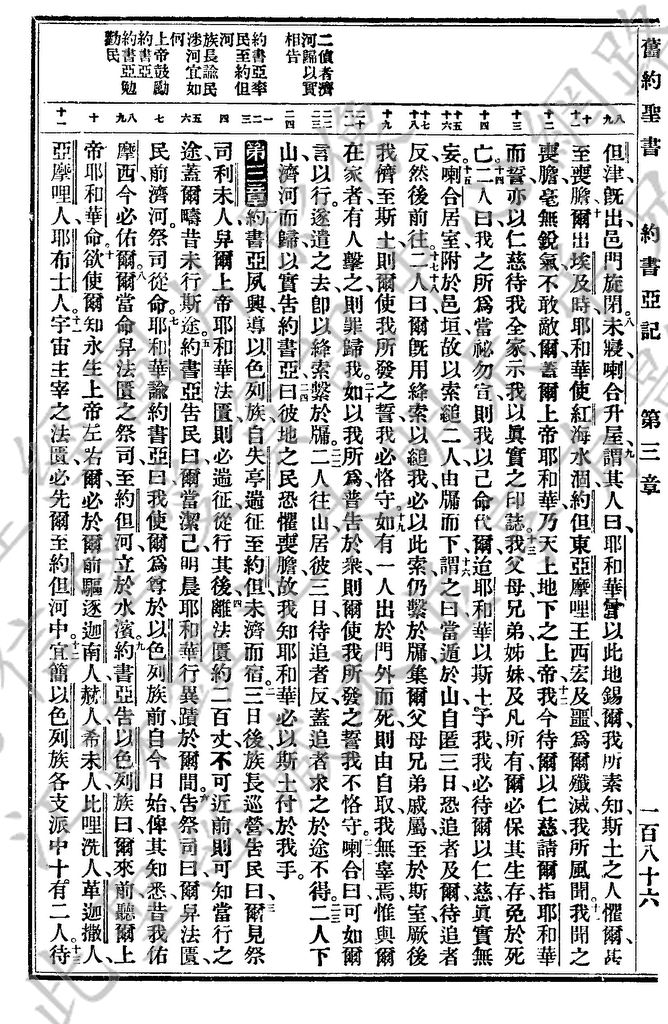 舊約聖書 約書亞記 第三章 一百八十六
二偵者濟
河歸以實
相告
約書亞率
民至約但
河
族長諭民
涉河宜如
何
上帝鼓勵
約書亞
約書亞勉
勸民
但津既出邑門旋閉未寢喇合升屋謂其人曰耶和華嘗以此地錫爾我所素知斯土之人懼爾甚
至喪膽爾出埃及時耶和華使紅海水涸約但東亞摩哩王西宏及噩爲爾殲滅我所風聞我聞之
喪膽毫無銳氣不敢敵爾蓋爾上帝耶和華乃天上地下之上帝我今待爾以仁慈請爾指耶和華
而誓亦以仁慈待我全家示我以眞實之印誌我父母兄弟姊妹及凡所有爾必保其生存免於死
亡二人曰我之所爲當祕勿宣則我以己命代爾迨耶和華以斯土予我我必待爾以仁慈眞實無
妄喇合居室附於邑垣故以索縋二人由牖而下謂之曰當遁於山自匿三日恐追者及爾待追者
反然後前往二人曰爾既用絳索以縋我必以此索仍繫於牖集爾父母兄弟戚屬至於斯室厥後
我儕至斯土則爾使我所發之誓我必恪守如有一人出於門外而死則由自取我無辜焉惟與爾
在家者有人擊之則罪歸我如以我所爲普告於衆則爾使我所發之誓我不恪守喇合曰可如爾
言以行遂遣之去卽以絳索繫於牖二人往山居彼三日待追者反蓋追者求之於途不得二人下
山濟河而歸以實告約書亞曰彼地之民恐懼喪膽故我知耶和華必以斯土付於我手
第三章約書亞夙興導以色列族自失亭遄征至約但未濟而宿三日後族長巡營告民曰爾見祭
司利未人舁爾上帝耶和華法匱則必遄征從行其後離法匱約二百丈不可近前則可知當行之
途蓋爾疇昔未行斯途約書亞告民曰爾當潔己明晨耶和華行異蹟於爾間告祭司曰爾舁法匱
民前濟河祭司從命耶和華諭約書亞曰我使爾爲尊於以色列族前自今日始俾其知悉昔我佑
摩西今必佑爾爾當命舁法匱之祭司至約但河立於水濱約書亞告以色列族曰爾來前聽爾上
帝耶和華命欲使爾知永生上帝左右爾必於爾前驅逐迦南人赫人希未人比哩洗人革迦撒人
亞摩哩人耶布士人宇宙主宰之法匱必先爾至約但河中宜簡以色列族各支派中十有二人待